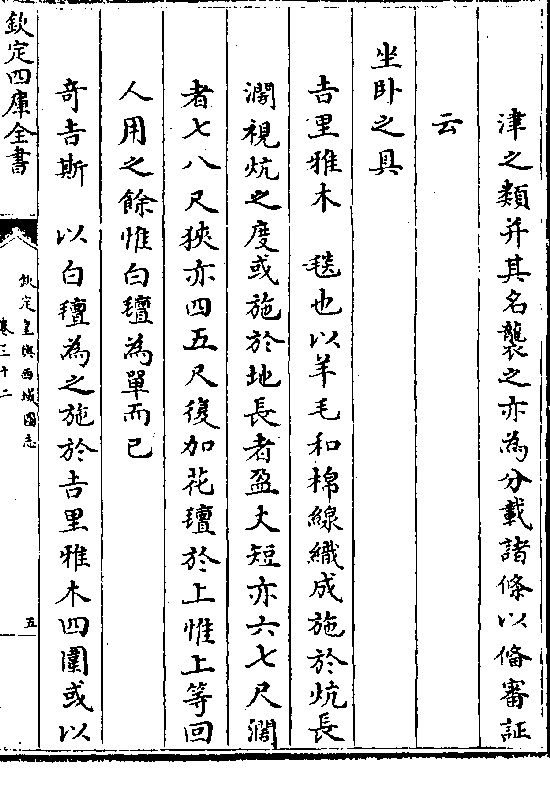 津之類并其名襲之亦為分載諸條以備審証
云
坐卧之具
吉里雅木　毯也以羊毛和棉線織成施於炕長
濶視炕之度或施於地長者盈丈短亦六七尺濶
者七八尺狹亦四五尺復加花氊於上惟上等回
人用之餘惟白氊為單而已
竒吉斯　以白氊為之施於吉里雅木四圍或以
欽定四庫全書
欽定皇輿西域圖志
卷三十二
五